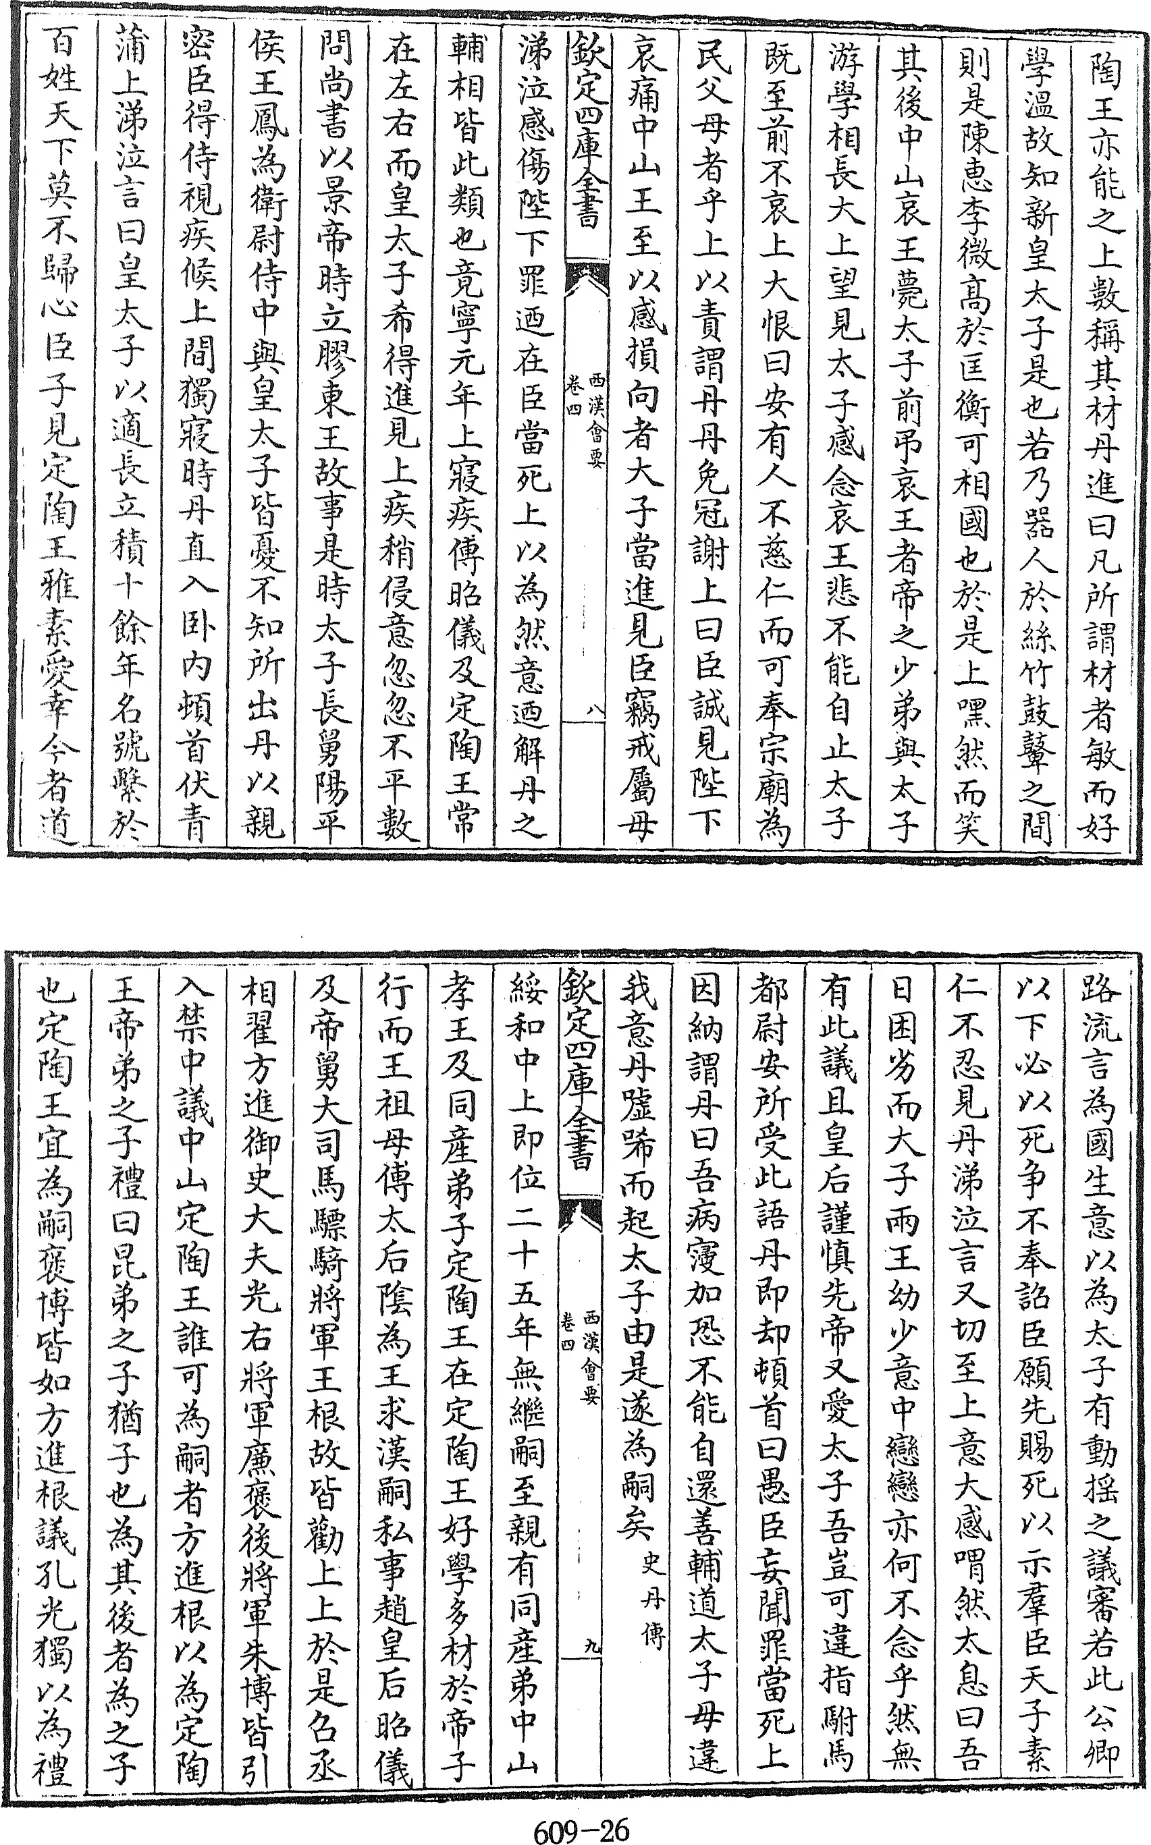 陶王亦能之上數稱其材丹進曰凡所謂材者敏而好
學溫故知新皇太子是也若乃器人於絲竹鼓鼙之間
則是陳惠李微髙於匡衡可相國也於是上嘿然而笑
其後中山哀王薨太子前弔哀王者帝之少弟與太子
游學相長大上望見太子感念哀王悲不能自止太子
既至前不哀上大恨曰安有人不慈仁而可奉宗廟為
民父母者乎上以責謂丹丹免冠謝上曰臣誠見陛下
哀痛中山王至以感損向者太子當進見臣竊戒屬毋
欽定四庫全書
西漢會要
卷四
八
涕泣感傷陛下罪迺在臣當死上以為然意迺解丹之
輔相皆此類也竟寧元年上寢疾傅昭儀及定陶王常
在左右而皇太子希得進見上疾稍侵意忽忽不平數
問尚書以景帝時立膠東王故事是時太子長舅陽平
侯王鳳為衛尉侍中與皇太子皆憂不知所出丹以親
密臣得侍視疾候上間獨寢時丹直入卧内頓首伏青
蒲上涕泣言曰皇太子以適長立積十餘年名號繫於
百姓天下莫不歸心臣子見定陶王雅素愛幸今者道
路流言為國生意以為太子有動揺之議審若此公卿
以下必以死爭不奉詔臣願先賜死以示羣臣天子素
仁不忍見丹涕泣言又切至上意大感喟然太息曰吾
日困劣而太子兩王幼少意中戀戀亦何不念乎然無
有此議且皇后謹慎先帝又愛太子吾豈可違指駙馬
都尉安所受此語丹即却頓首曰愚臣妄聞罪當死上
因納謂丹曰吾病寖加恐不能自還善輔道太子毋違
我意丹噓唏而起太子由是遂為嗣矣史丹傳
欽定四庫全書
西漢會要
卷四
九
綏和中上即位二十五年無繼嗣至親有同産弟中山
孝王及同産弟子定陶王在定陶王好學多材於帝子
行而王祖母傅太后陰為王求漢嗣私事趙皇后昭儀
及帝舅大司馬驃騎將軍王根故皆勸上上於是召丞
相翟方進御史大夫光右將軍廉褒後將軍朱博皆引
入禁中議中山定陶王誰可為嗣者方進根以為定陶
王帝弟之子禮曰昆弟之子猶子也為其後者為之子
也定陶王宜為嗣褒博皆如方進根議孔光獨以為禮
609-26